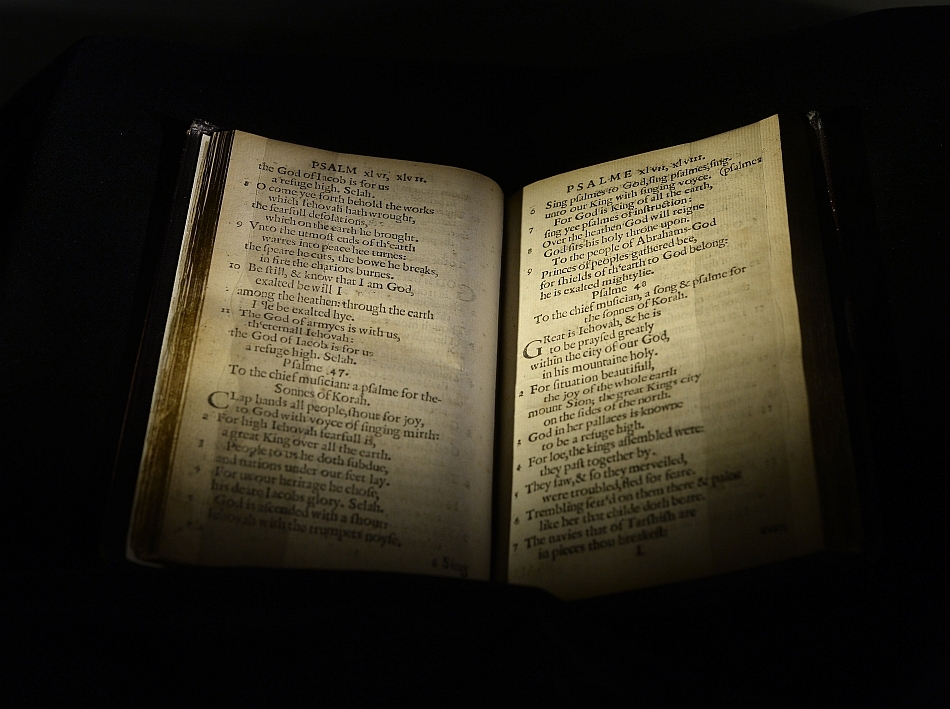 PSALM xlvi, xlvii.
the God of Iacob is for us
a refuge high. Selah.
8 O come yee forth behold the works
which Iehovah hath wrought,
the fearfull desolations,
which on the earth he brought.
9 Vnto the utmost ends of th'earth
warres into peace hee turnes:
the speare he cuts, the bowe he breaks,
in fire the chariots burnes.
10 Be still, & know that I am God,
exalted be will I
among the heathen: through the earth
I'le be exalted hye.
11 The God of armyes is with us,
th'eternall Iehovah:
the God of Iacob is for us
a refuge high. Selah.
Psalme 47.
To the chief musician: a psalme for the
Sonnes of Korah.
CLap hands all people, shout for joy,
to God with voyce of singing mirth:
2 For high Iehovah fearfull is,
a great King over all the earth.
3 People to us he doth subdue,
and nations under our feet lay.
4 For us our heritage he chose,
his deare Iacobs glory. Selah.
5 God is ascended with a shout
Iehovah with the trumpets noyse.
6 Sing
PSALME xlvii, xlviii.
6 Sing psalmes to God, sing psalmes, sing
unto our King with singing voyce. (psalmes
7 For God is King of all the earth,
sing yee psalmes of instruction:
8 Over the heathen God will reigne
God sits his holy throne upon.
9 To the people of Abrahams God
Princes of peoples gathered bee,
for shields of th'earth to God belong:
he is exalted mightylie.
Psalme 48
To the chief musician, a song & psalme for
the sonnes of Korah.
GReat is Iehovah, & he is
to be praysed greatly
within the city of our God,
in his mountaine holy.
2 For situation beautifull,
the joy of the whole earth
mount Sion; the great Kings city
on the sides of the north.
3 God in her pallaces is knowne
to be a refuge high.
4 For loe, the kings assembled were:
they past together by.
5 They saw, & so they merveiled,
were troubled, fled for feare.
6 Trembling seiz'd on them there & paine
like her that childe doth beare.
7 The navies that of Tarshish are
in pieces thou breakest: